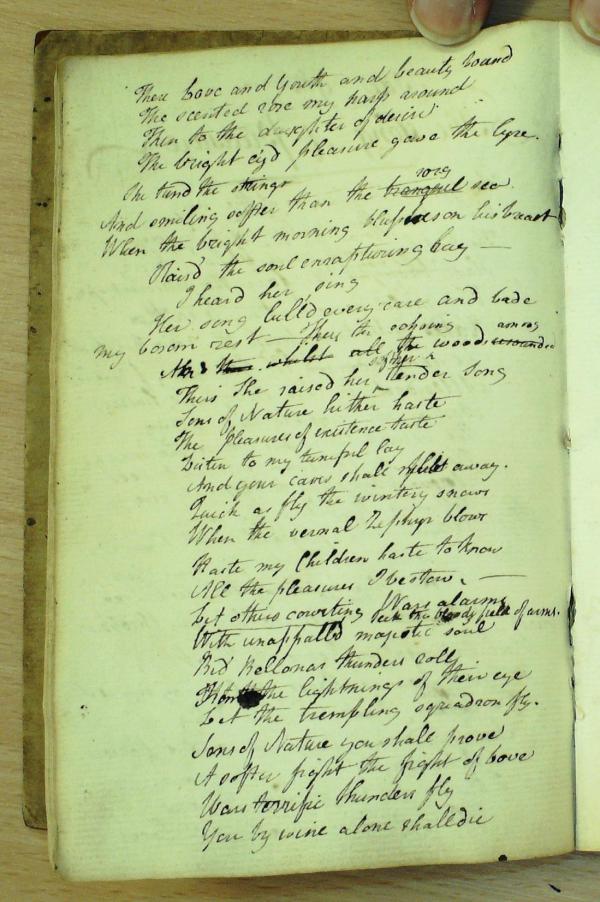 There Love and Youth and beauty bound
The scented rose my harp around
Then to the daughter of desire
The bright ey'd pleasure gave the Lyre.
She tun'd the strings
rosy
And smiling softer than the tranquil sea
When the bright morning blushes on his breast
Rais'd the soul enrapturing lay —
I heard her sing
Her song lull'd every care and bade
my bosom rest — Then the echoing among
whilst all the woods resounded
softer
Thus She raised her tender song
Sons of Nature hither haste
The pleasures of existence taste
Listen to my tuneful lay
And your cares shall away.
Quick as fly the wintery snows
When the vernal Zephyr blows
Haste my Children haste to know
All the pleasures I bestow. —
Let others courting Wars alarms
Seek the bloody field of arms.
With unappall'd majestic soul
Bid Bellonas thunders roll
the lightnings of their eye
Let the trembling squadron fly.
Sons of Nature you shall prove
A softer fight the fight of Love
Wars terrific thunders fly
You by wine alone shall die